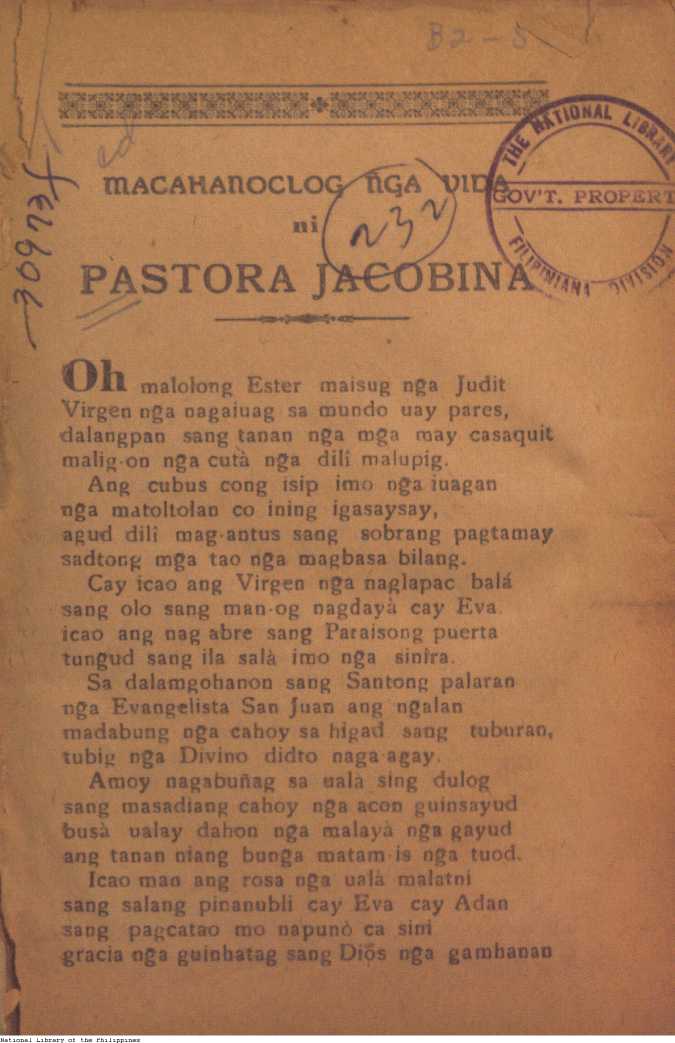 B2-5
THE NATIONAL LIBRARY
GOV'T. PROPERT
FILIPINIANA DIVISION
MACAHANOCLOG ñGA VIDA
ni
232
PASTORA JACOBINA
Oh malolong Ester maisug nga Judit
Virgen nga nagaiuag sa mundo uay pares,
dalangpan sang tanan nga mga may casaquit
malig-on nga cutà nga dilî malupig.
Ang cubus cong isip imo nga iuagan
nga matoltolan co ining igasaysay,
agud dilî mag-antus sang sobrang pagtamay
sadtong mga tao nga magbasa bilang.
Cay icao ang Virgen nga naglapac balá
sang olo sang man-og nagdayà cay Eva.
icao ang nag abre sang Paraisong puerta
tungud sang ila salà imo nga sinira.
Sa dalamgohanon sang Santong palaran
nga Evangelista San Juan ang ngalan
madabung nga cahoy sa higad sang tuburan,
tubig nga Divino didto naga-agay.
Amoy nagabuñag sa ualà sing dulog
sang masadiang cahoy nga acon guinsayud
busà ualay dahon nga malayà nga gayud
ang tanan niang bunga matam-is nga tuod.
Icao man ang rosa nga ualà malatni
sang salang pinanubli cay Eva cay Adan
sang pagcatao mo napunò ca sini
gracia nga guinhatag sang Dios nga gamhanan
National Library of the Philippines